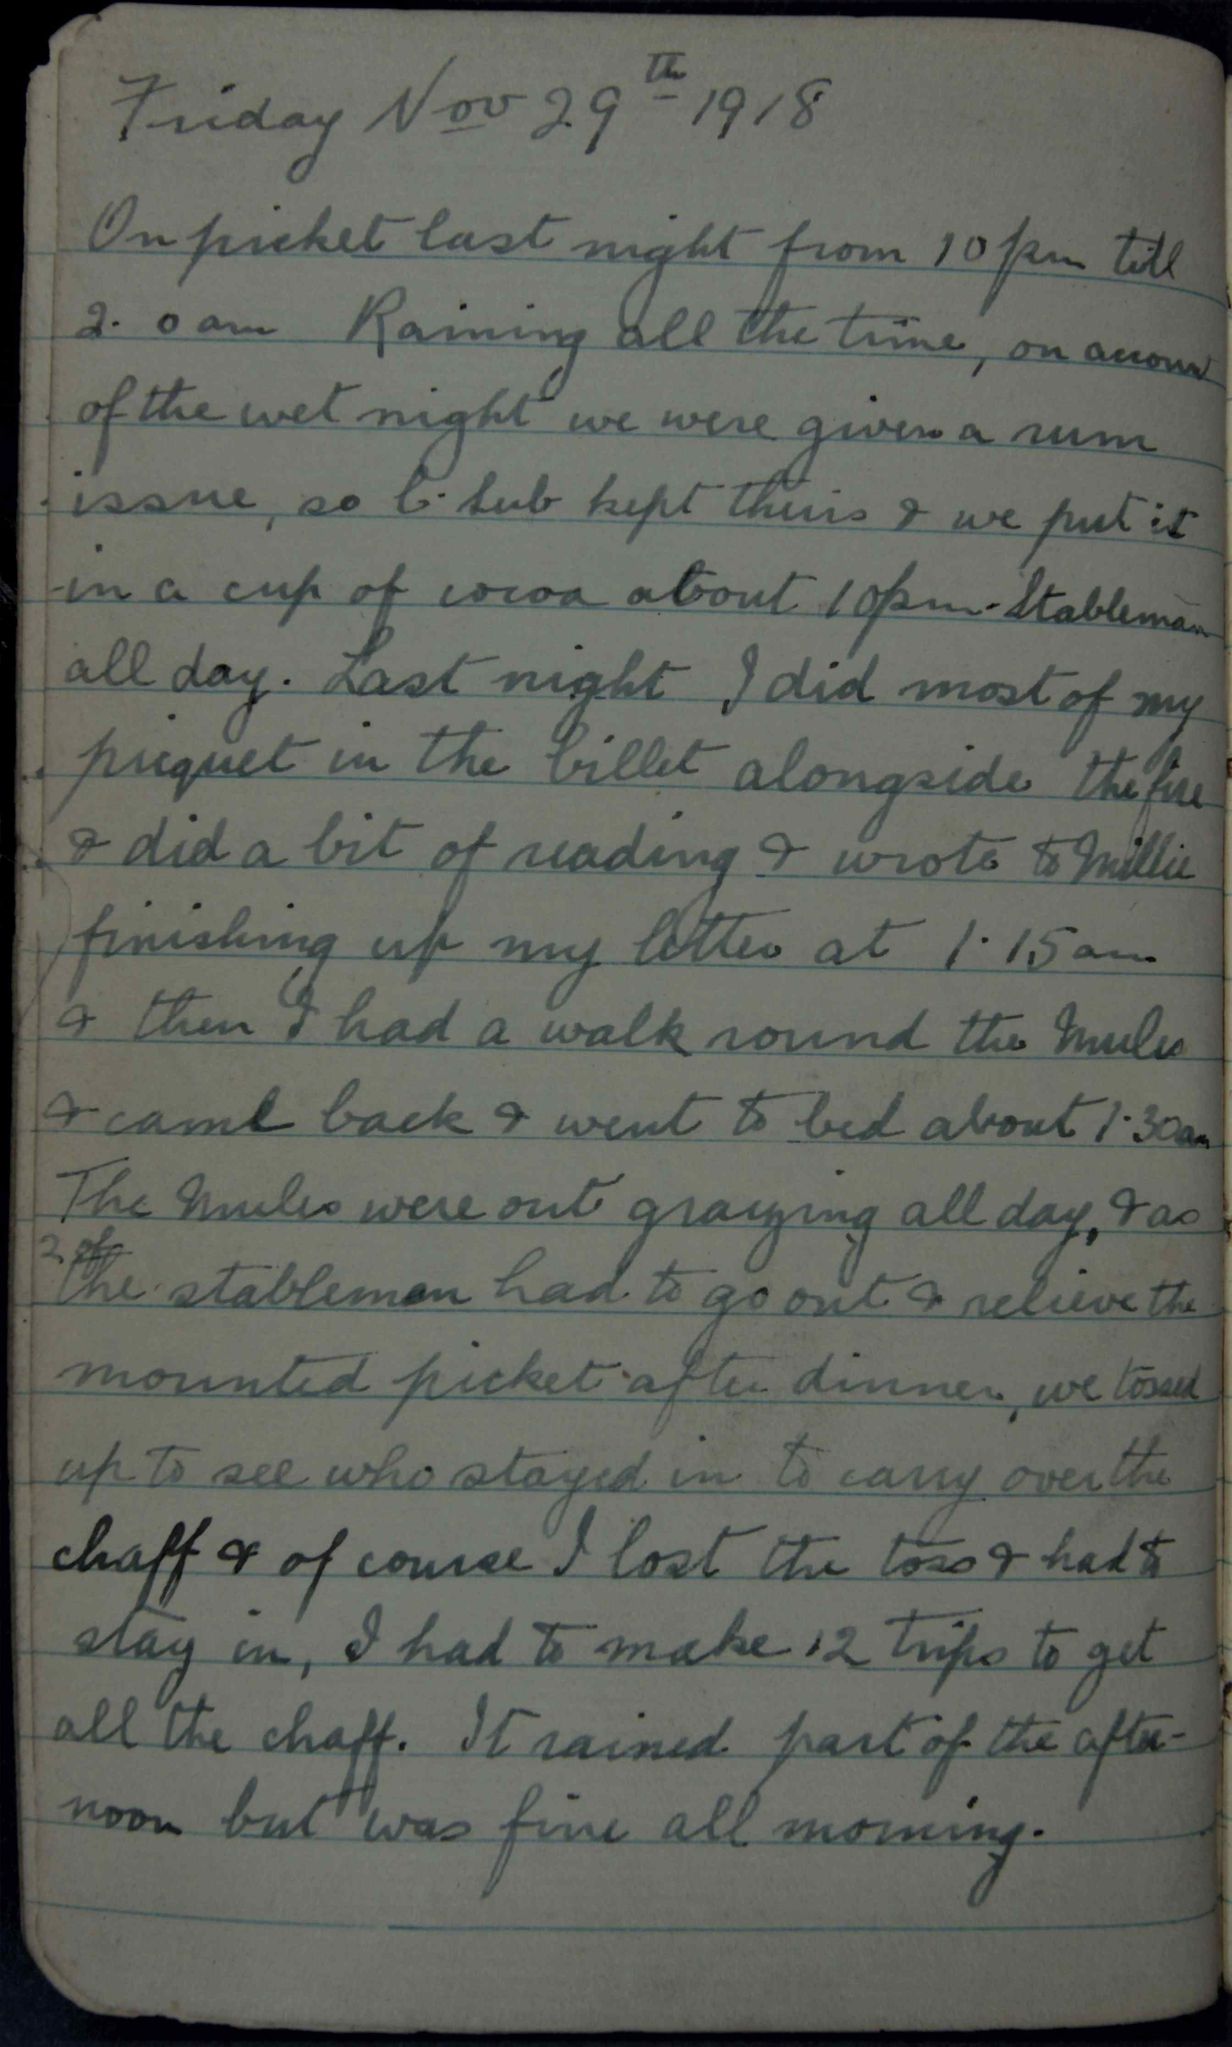 Friday Nov 29th 1918
On picket last night from 10 pm till
2. 0 am Raining all the time, on accoun
of the wet night we were given a rum
issue, so C. Sub kept theirs & we put it
in a cup of cocoa about 10 pm. Stableman
all day. Last night I did most of my
picquet in the billet alongside the fire
& did a bit of reading & wrote to Millie
finishing up my letter at 1.15 am
& then I had a walk round the Mules
& came back & went to bed about 1.30 am
The Mules were out grayzing all day, & as
2 of the stablemen had to go out & relieve the
mounted picket after dinner, we tossed
up to see who stayed in to carry over the
chaff & of course I lost the toss & had to
stay in, I had to make 12 trips to get
all the chaff. It rained part of the after-
noon but was fine all morning.